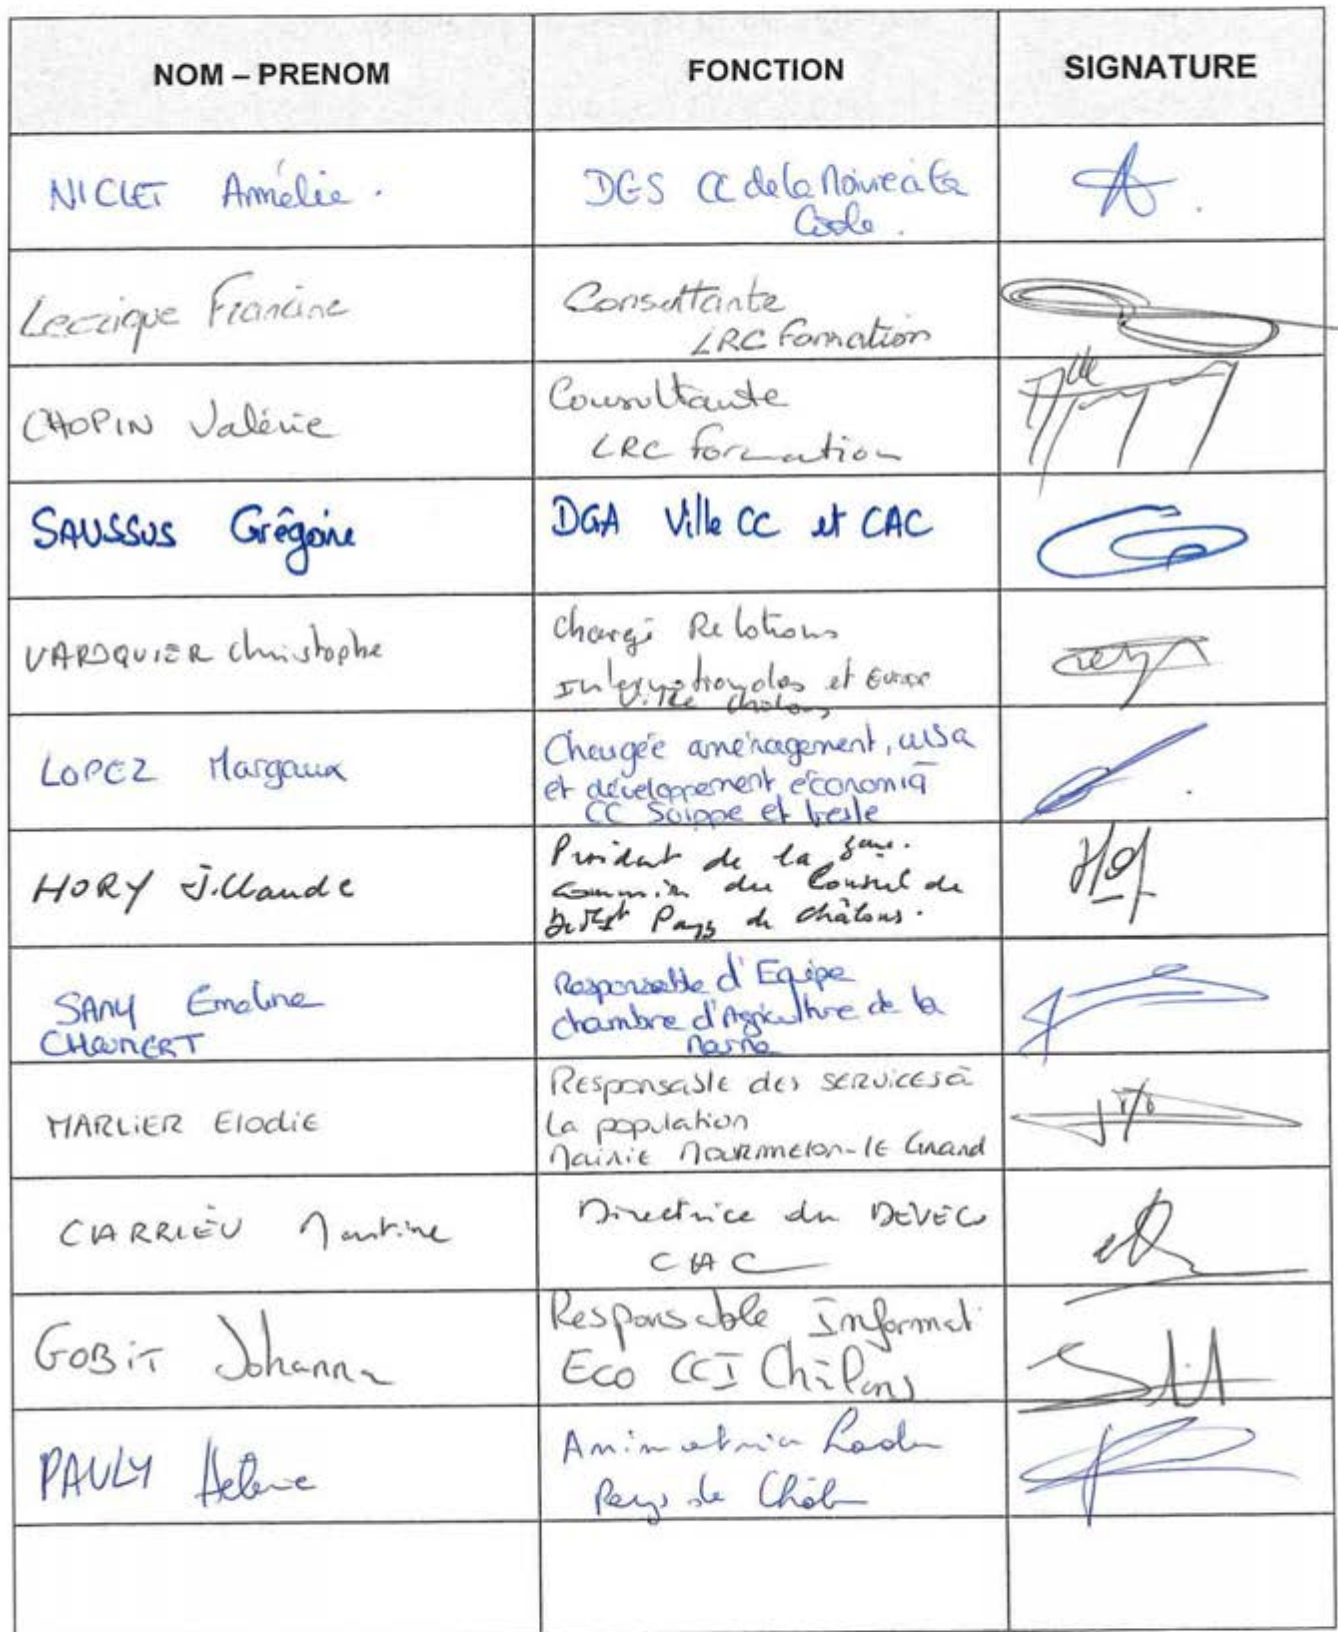 NOM – PRENOM FONCTION SIGNATURE
NICLET Amélie. DGS CC de la Moivre à la
Coole.
Leclique Francine Consultante
LRC Formation
CHOPIN Valérie Consultante
LRC formation
SAUSSUS Grégoire DGA Ville CC et CAC
VARDQUIER Christophe Chargé Relations
Internationales et Europe
Ville Châlons
LOPEZ Margaux Chargée aménagement,
et développement économiq
CC Suippe et Vesle
HORY J.Claude Président de la
Commission du Conseil de
Pays de Châlons.
SAMY Emeline Responsable d'Equipe
chambre d'Agriculture de la
Marne
MARLIER Elodie Responsable des services à
la population
Mairie Mourmelon-le Grand
CARRIEU Martine Directrice du DEVECO
CAC
GOBIT Johanna Responsable Informat
Eco CCI Châlons
PAULY Helene Animatrice Leader
Pays de Châl